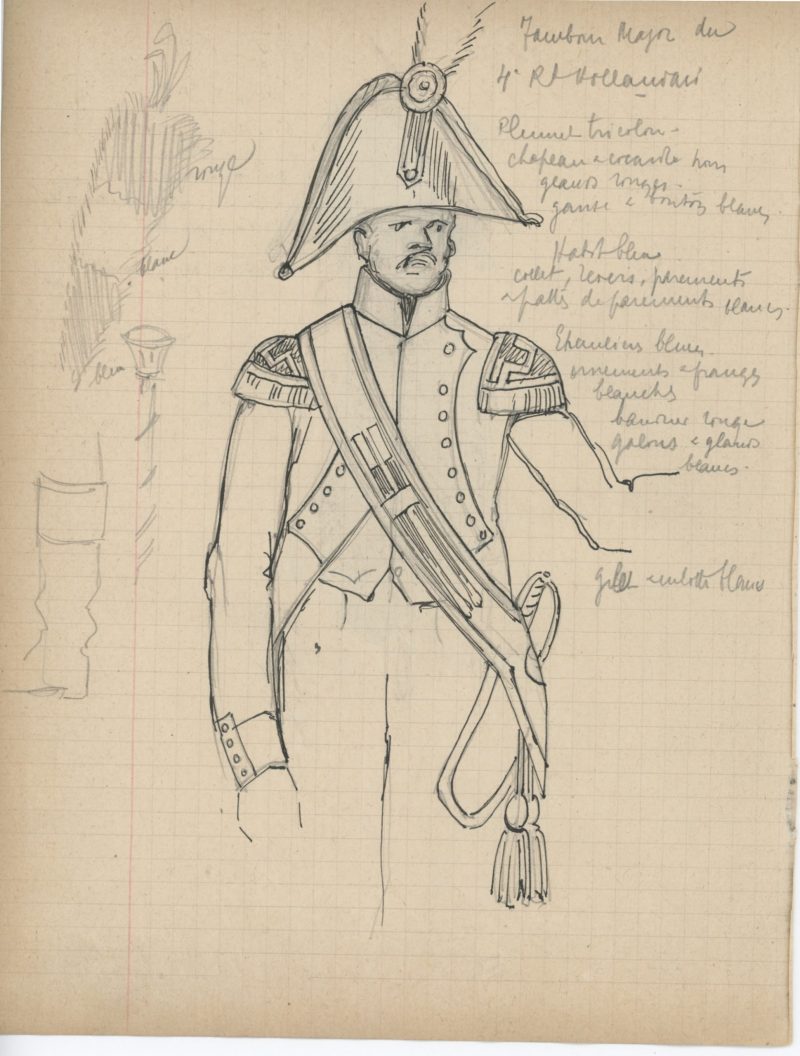 Tambour Major du
4e Rt Hollandais
Plumet tricolore
chapeau à cocarde
glands rouges.
ganse & boutons blancs.
Habit bleu
collet, revers, parements
& pattes de parements blancs.
Epaulières bleues
ornements & franges
blanches
baudrier rouge
galons & glands
blancs.
gilet culotte blancs
rouge
blanc
bleu